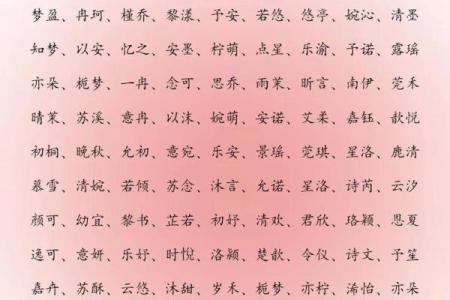 梦盈、冉珂、槿乔、黎漾、予安、若悠、悠亭、婉沁、清墨
知梦、以安、忆之、安墨、柠萌、点星、乐渝、予诺、露瑶
亦朵、栀梦、一冉、念可、思乔、雨茉、昕言、南伊、莞禾
晴茉、苏溪、意冉、以沫、婉萌、安诺、艾柔、嘉钰、歆悦
初桐、晚秋、允初、意宛、乐安、景瑶、莞琪、星洛、鹿清
慕雪、清婉、若倾、苏念、沐言、允诺、星洛、诗芮、云汐
颜可、幼宜、黎书、芷若、初妤、清欢、君欣、珞颖、恩夏
逸可、意妍、乐妤、时悦、洛颖、楚歆、令仪、诗文、予笙
嘉卉、苏酥、云悠、沐甜、岁禾、栀梦、亦柠、浠怡、亦朵